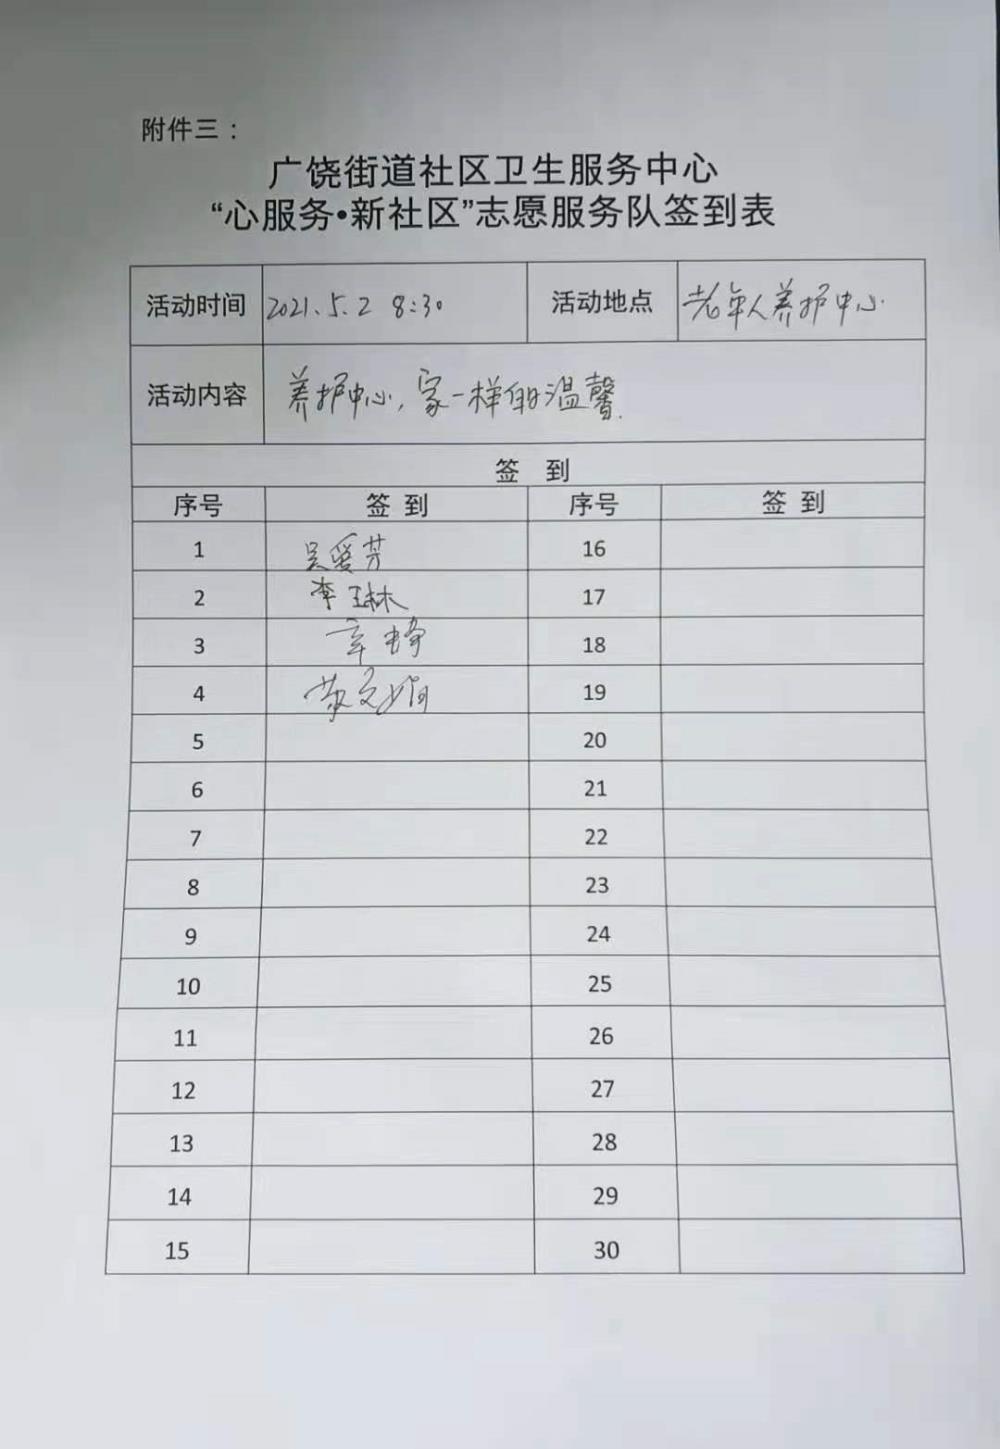 附件三：
广饶街道社区卫生服务中心
“心服务•新社区”志愿服务队签到表
活动时间 2021.5.2 8:30 活动地点 老年人养护中心
活动内容 养护中心,家一样的温馨.
签 到
序号 签 到 序号 签 到
1 吴爱芳 16
2 李琳 17
3 辛 18
4 苏文娟 19
5 20
6 21
7 22
8 23
9 24
10 25
11 26
12 27
13 28
14 29
15 30